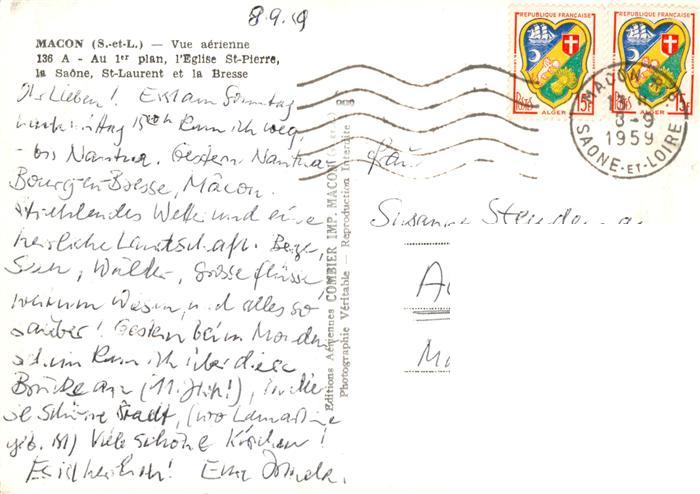 8.9.
MACON (S.-et-L.) — Vue aérienne
136 A - Au 1er plan, l'Eglise St-Pierre,
la Saône, St-Laurent et la Bresse
Ihr Lieben! Erst am Sonntag
kam ich weg,
bis Nantua. Gestern Nantua
Bourg-en-Bresse, Mâcon.
Strahlendes Wetter und eine
herrliche Landschaft. Berge,
Seen, Wälder, grosse Flüsse,
Wiesen, und alles so
sauber! Gestern beim Monden
schein kam ich über diese
Brücke an (11. Uhr!), in die
se schöne Stadt, (wo Lamartine
geb. ist) Viele schöne Kirchen!
Es ist herrlich! Eure
Editions Aériennes COMBIER IMP. MACON
Photographie Véritable - Reproduction Interdite
REPUBLIQUE FRANÇAISE
POSTES 15F
ALGER
REPUBLIQUE FRANÇAISE
15F
ALGER
MACON R.P.
1959
SAONE-ET-LOIRE
Frau
Susanne